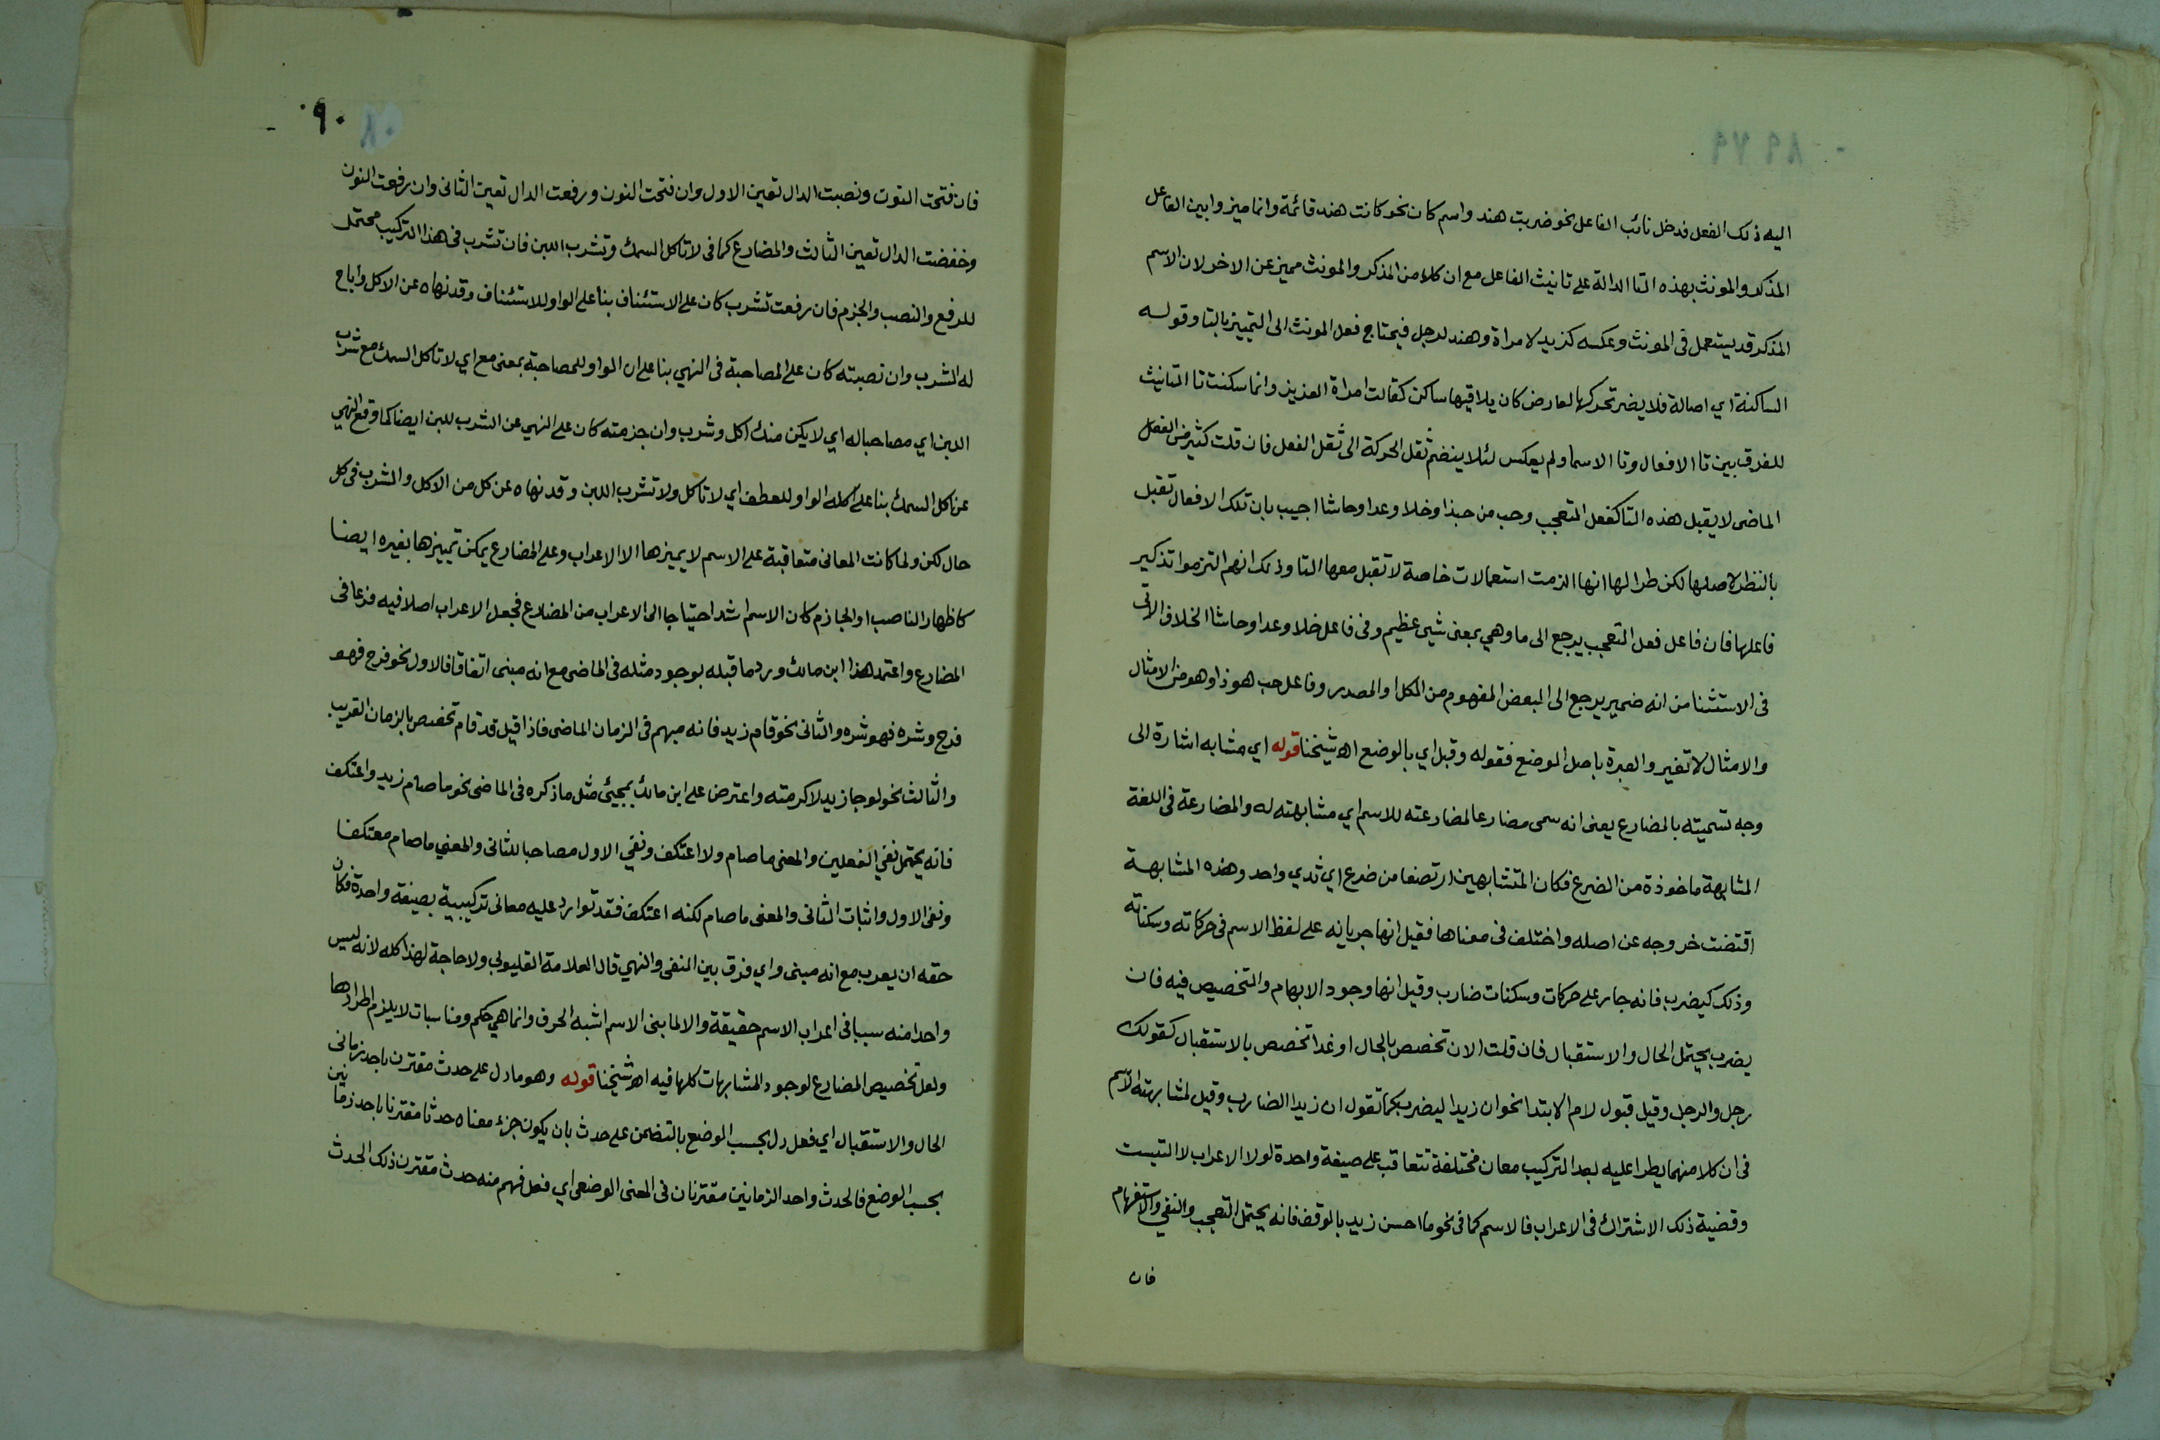 اليه ذلك الفعل فدخل نائب الفاعل نحو ضربت هند واسم كان نحو كانت هند قائمة وانما ميزوا بين الفاعل
المذكر والمونث بهذه التا الدالة على تانيث الفاعل مع ان كلا من المذكر والمونث مميز عن الاخر لان الاسم
المذكر قد يستعمل فى المونث وعكسه كزيد لامراة وهند لرجل فيحتاج فعل المونث الى التمييز بالتا وقوله
الساكنة اي اصالة فلا يضر تحركها لعارض كان يلاقيها ساكن كقالت امراة العزيز وانما سكنت تا التانيث
للفرق بين تا الافعال وتا الاسما ولم يعكس لئلا ينضم ثقل الحركة الى ثقل الفعل فان قلت كثير من الفعل
الماضى لا يقبل هذه التا كفعل التعجب وحب من حبذا وخلا وعدا وحاشا اجيب بان تلك الافعال تقبل
بالنظر لاصلها لكن طرا لها انها الزمت استعمالات خاصة لا تقبل معها التا وذلك انهم التزموا تذكير
فاعلها فان فاعل فعل التعجب يرجع الى ما وهي بمعنى شيئ عظيم وفى فاعل خلا وعدا وحاشا الخلاف الاتى
فى الاستثنا من انه ضمير يرجع الى البعض المفهوم من الكل او المصدر وفاعل حب هو ذا وهو من الامثال
والامثال لا تغير والعبرة باصل الموضع فقوله وقبل اي بالوضع اهـ شيخنا قوله اي مشابه اشارة الى
وجه تسميته بالمضارع يعنى انه سمى مضارعا لمضارعته للاسم اي مشابهته له والمضارعة فى اللغة
المشابهة ماخوذة من الضرع فكان المتشابهين ارتضعا من ضرع اي ثدي واحد وهذه المشابهة
اقتضت خروجه عن اصله واختلف فى معناها فقيل انها جريانه على لفظ الاسم فى حركاته وسكناته
وذلك كيضرب فانه جار على حركات وسكنات ضارب وقيل انها وجود الابهام والتخصيص فيه فان
يضرب يحتمل الحال والاستقبال فان قلت الان تخصص بالحال او غدا تخصص بالاستقبال كقولك
رجل والرجل وقيل قبول لام الابتدا نحو ان زيدا ليضرب كما تقول ان زيدا لضارب وقيل لمشابهته الاسم
فى ان كلا منهما يطرا عليه بعد التركيب معان مختلفة تتعاقب على صيغة واحدة لولا الاعراب لالتبست
وقضية ذلك الاشتراك فى الاعراب فالاسم كما فى نحو ما احسن زيد بالوقف فانه يحتمل التعجب والنفي والاستفهام
فان
٩٠
فان فتحت النون ونصبت الدال تعين الاول وان فتحت النون ورفعت الدال تعين الثانى وان رفعت النون
وخفضت الدال تعين الثالث والمضارع كما فى لا تاكل السمك وتشرب اللبن فان تشرب فى هذا التركيب محتمل
للرفع والنصب والجزم فان رفعت تشرب كان على الاستئناف بنا على الواو للاستئناف وقد نهاه عن الاكل واباح
له الشرب وان نصبته كان على المصاحبة فى النهي بنا على ان الواو للمصاحبة بمعنى مع اي لا تاكل السمك مع شرب
اللبن اي مصاحبا له اي لا يكن منك اكل وشرب وان جزمته كان على النهي عن الشرب للبن ايضا كما وقع النهي
عن اكل السمك بنا على كله الواو للعطف اي لا تاكل ولا تشرب اللبن وقد نهاه عن كل من الاكل والشرب فى كل
حال لكن ولما كانت المعانى متعاقبة على الاسم لا يميزها الا الاعراب وعلى المضارع يمكن تمييزها بغيره ايضا
كاظهار الناصب او الجازم كان الاسم اشد احتياجا الى الاعراب من المضارع فجعل الاعراب اصلا فيه فرعا فى
المضارع واعتمد هذا ابن مالك ورد ما قبله بوجود مثله فى الماضى مع انه مبنى اتفاقا فالاول نحو فرح فهو
فرح وشره فهو شره والثانى نحو قام زيد فانه مبهم فى الزمان الماضى فاذا قيل قد قام تخصص بالزمان القريب
والثالث نحو لو جا زيد لاكرمته واعترض على ابن مالك بمجيئ مثل ما ذكره فى الماضى نحو ما صام زيد واعتكف
فانه يحتمل نفي الفعلين والمعنى ما صام ولا اعتكف ونفي الاول مصاحبا للثانى والمعنى ما صام معتكفا
ونفى الاول واثبات الثانى والمعنى ما صام لكنه اعتكف فقد توارد عليه معانى تركيبية بصيغة واحدة فكان
حقه ان يعرب مع انه مبنى واي فرق بين المنفى والنهي قال العلامة القليوبي ولا حاجة لهذا كله لانه ليس
واحد منه سببا فى اعراب الاسم حقيقة والا لما بنى الاسم اشبه الحرف وانما هي حكم ومناسبات لا يلزم اطرادها
ولعل تخصيص المضارع لوجود المشابهات كلها فيه اهـ شيخنا قوله وهو ما دل على حدث مقترن باحد زمانى
الحال والاستقبال اي فعل دل بحسب الوضع بالتضمن على حدث بان يكون جزء معناه حدثا مقترنا باحد زمانين
بحسب الوضع فالحدث واحد الزمانين مقترنان فى المعنى الوضعى اي فعل فهم منه حدث مقترن ذلك الحدث